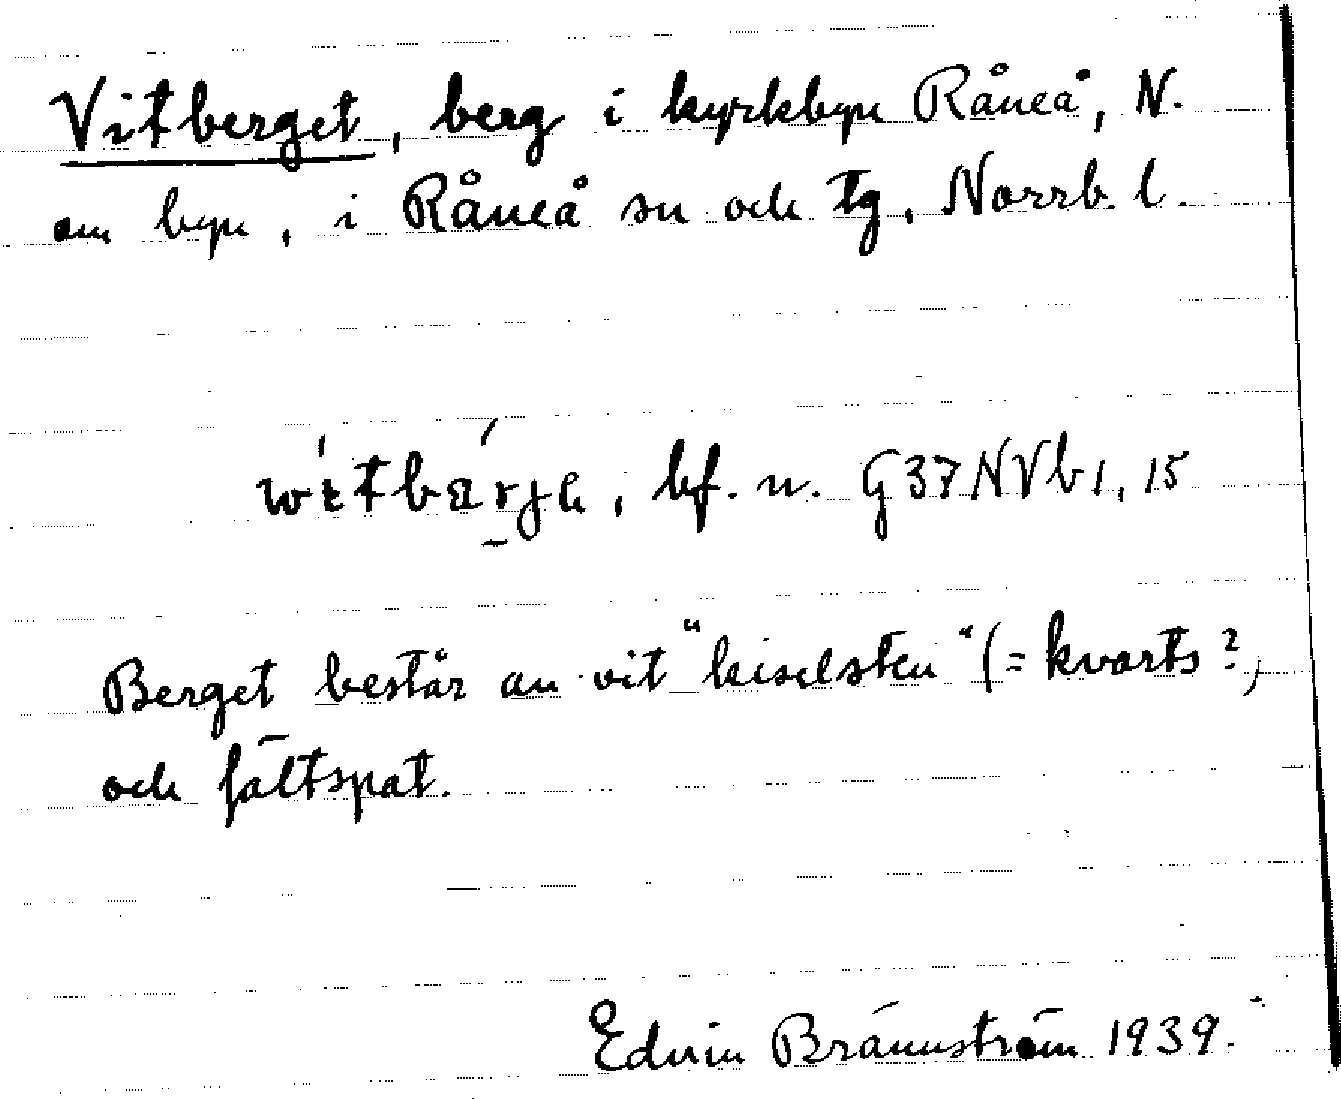 Vitberget, berg i kyrkbyn Råneå, N.
om byn, i Råneå sn och tg, Norrb. l.
bf. n. G37NVb1, 15
Berget består av vit "kiselsten" (= kvarts?)
och fältspat.
Edvin Brännström 1939.